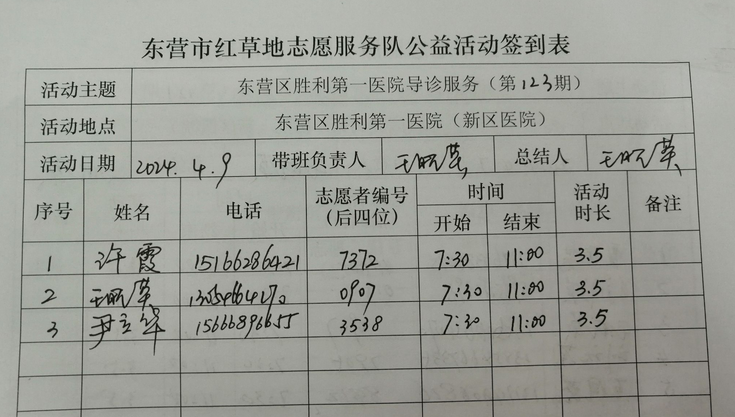 东营市红草地志愿服务队公益活动签到表
活动主题 东营区胜利第一医院导诊服务（第123期）
活动地点 东营区胜利第一医院（新区医院）
活动日期 2024.4.9 带班负责人 总结人
序号 姓名 电话 志愿者编号（后四位） 时间 开始 结束 活动时长 备注
1 许霞 15166286421 7372 7:30 11:00 3.5
2 0907 7:30 11:00 3.5
3 15666896655 3538 7:30 11:00 3.5